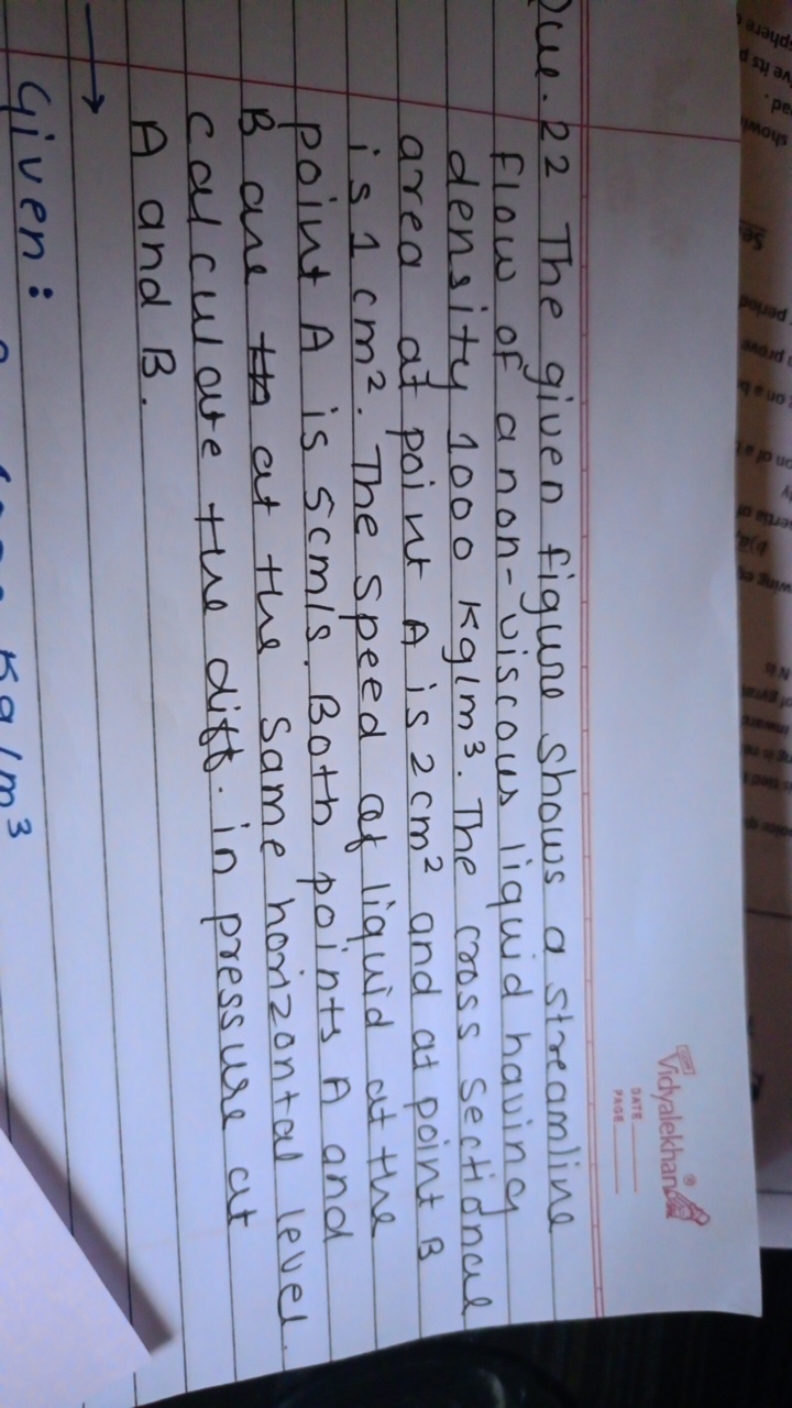 Vidyalekhan®
DATE
PAGE
Que. 22 The given figure shows a streamline
flow of a non-viscous liquid having
density 1000 Kg/m³. The cross sectional
area at point A is 2 cm² and at point B
is 1 cm². The speed of liquid at the
point A is 5cm/s. Both points A and
B are th at the same horizontal level.
calculate the diff. in pressure at
A and B.
→
Given:
Kg/m³
sphere
ve its p
showi
period
prove
on a b
on of a
ertia of
wing eq
of gyrat